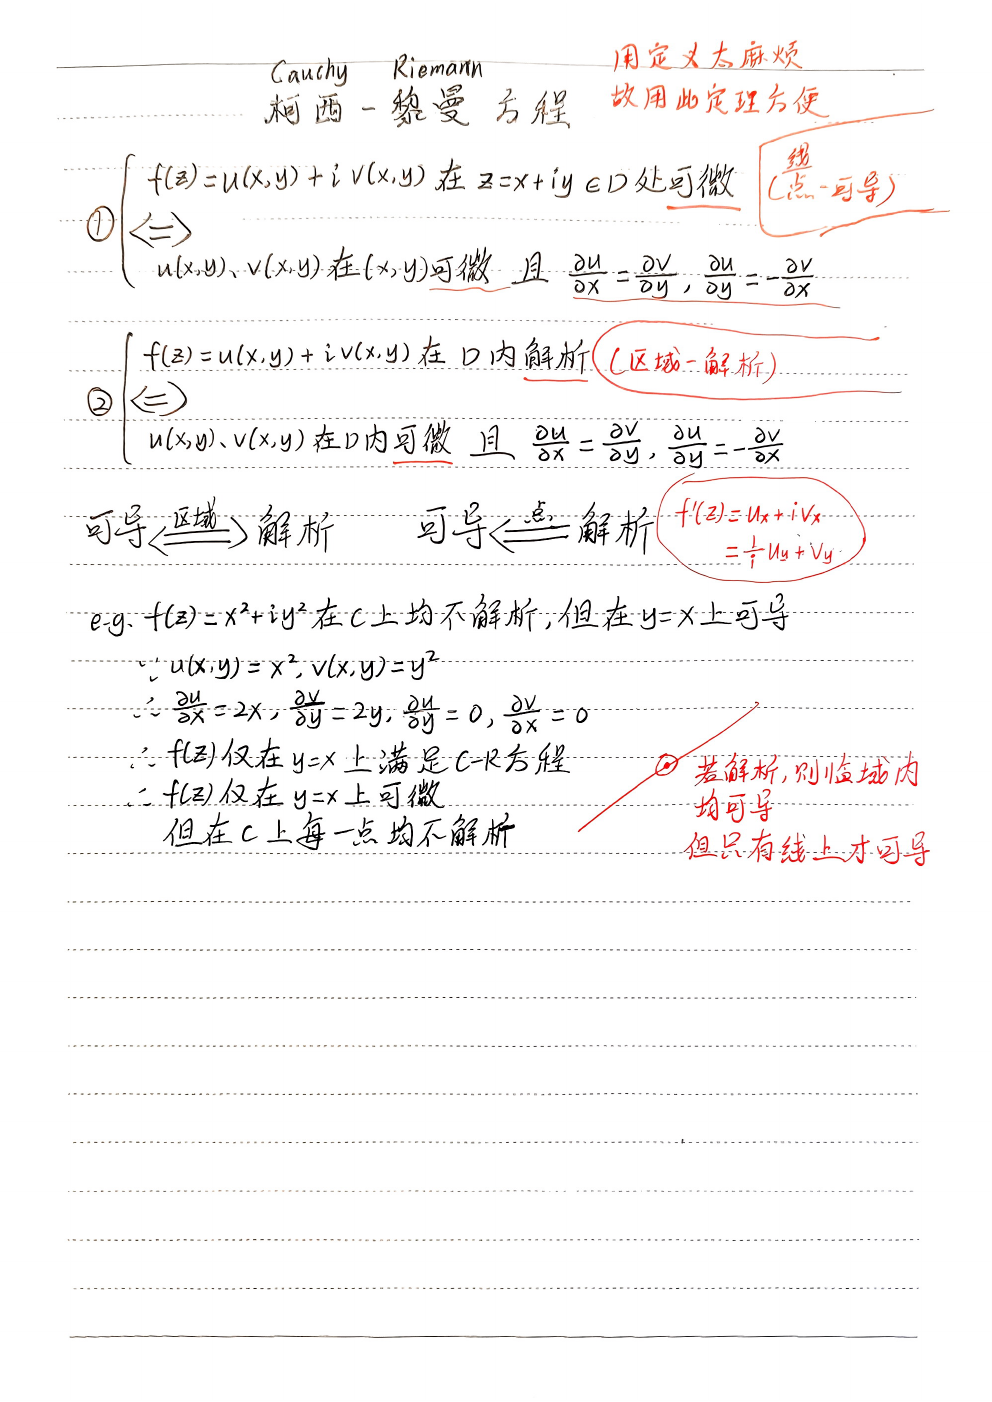 Cauchy Riemann
柯西-黎曼方程
用定义太麻烦
故用此定理方便
① f(z)=u(x,y)+iv(x,y)在 z=x+iy∈D处可微
线
(点-可导)
<=>
u(x,y)、v(x,y)在(x,y)可微 且 ∂u/∂x=∂v/∂y, ∂u/∂y=-∂v/∂x
② f(z)=u(x,y)+iv(x,y)在 D内解析 (区域-解析)
<=>
u(x,y)、v(x,y)在D内可微 且 ∂u/∂x=∂v/∂y, ∂u/∂y=-∂v/∂x
可导<=区域=>解析 可导<=点=解析
f'(z)=ux+ivx
=1/i uy+vy
e.g. f(z)=x²+iy²在C上均不解析,但在y=x上可导
∵ u(x,y)=x²,v(x,y)=y²
∴ ∂u/∂x=2x, ∂v/∂y=2y, ∂u/∂y=0, ∂v/∂x=0
∴ f(z)仅在y=x上满足C-R方程
∴ f(z)仅在y=x上可微
但在C上每一点均不解析
若解析,则临域内
均可导
但只有线上才可导